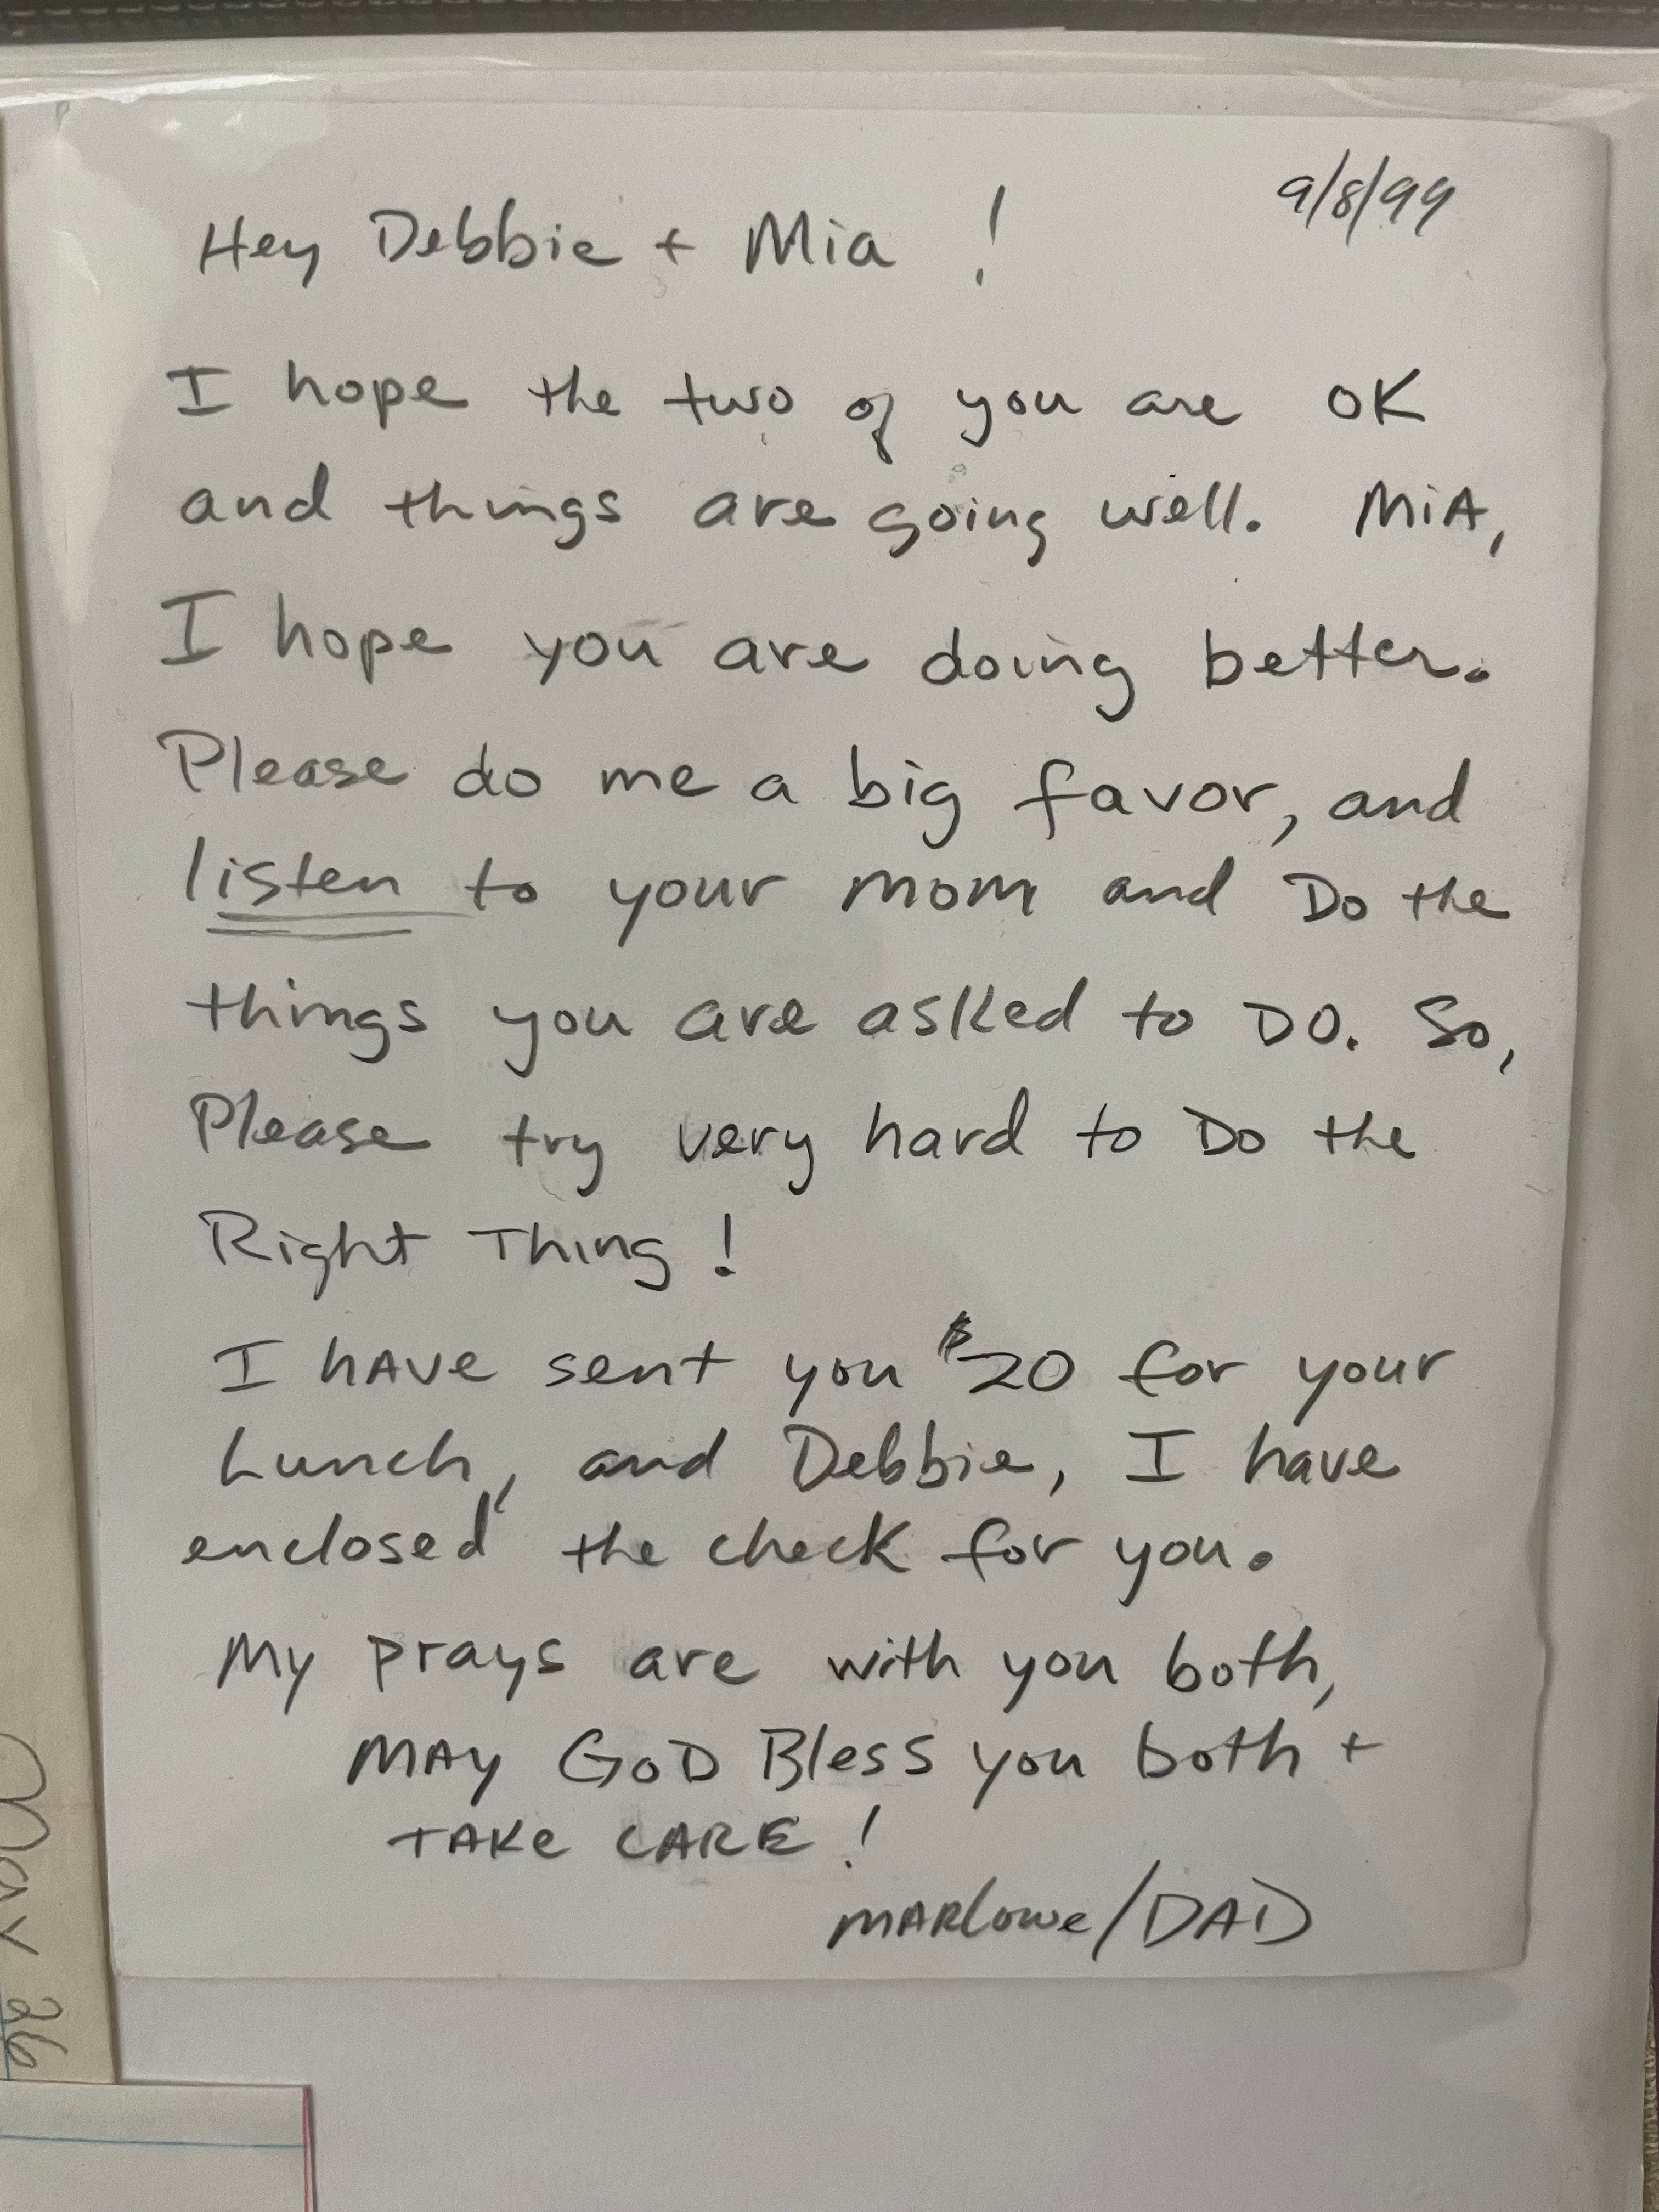 9/8/99
Hey Debbie + Mia !
I hope the two of you are OK
and things are going well. MiA,
I hope you are doing better.
Please do me a big favor, and
listen to your mom and Do the
things you are asked to DO. So,
Please try very hard to Do the
Right Thing !
I hAve sent you $20 for your
Lunch, and Debbie, I have
enclosed the check for you.
My prays are with you both,
MAy GoD Bless you both +
TAKe CARE !
MARlowe/DAD
26